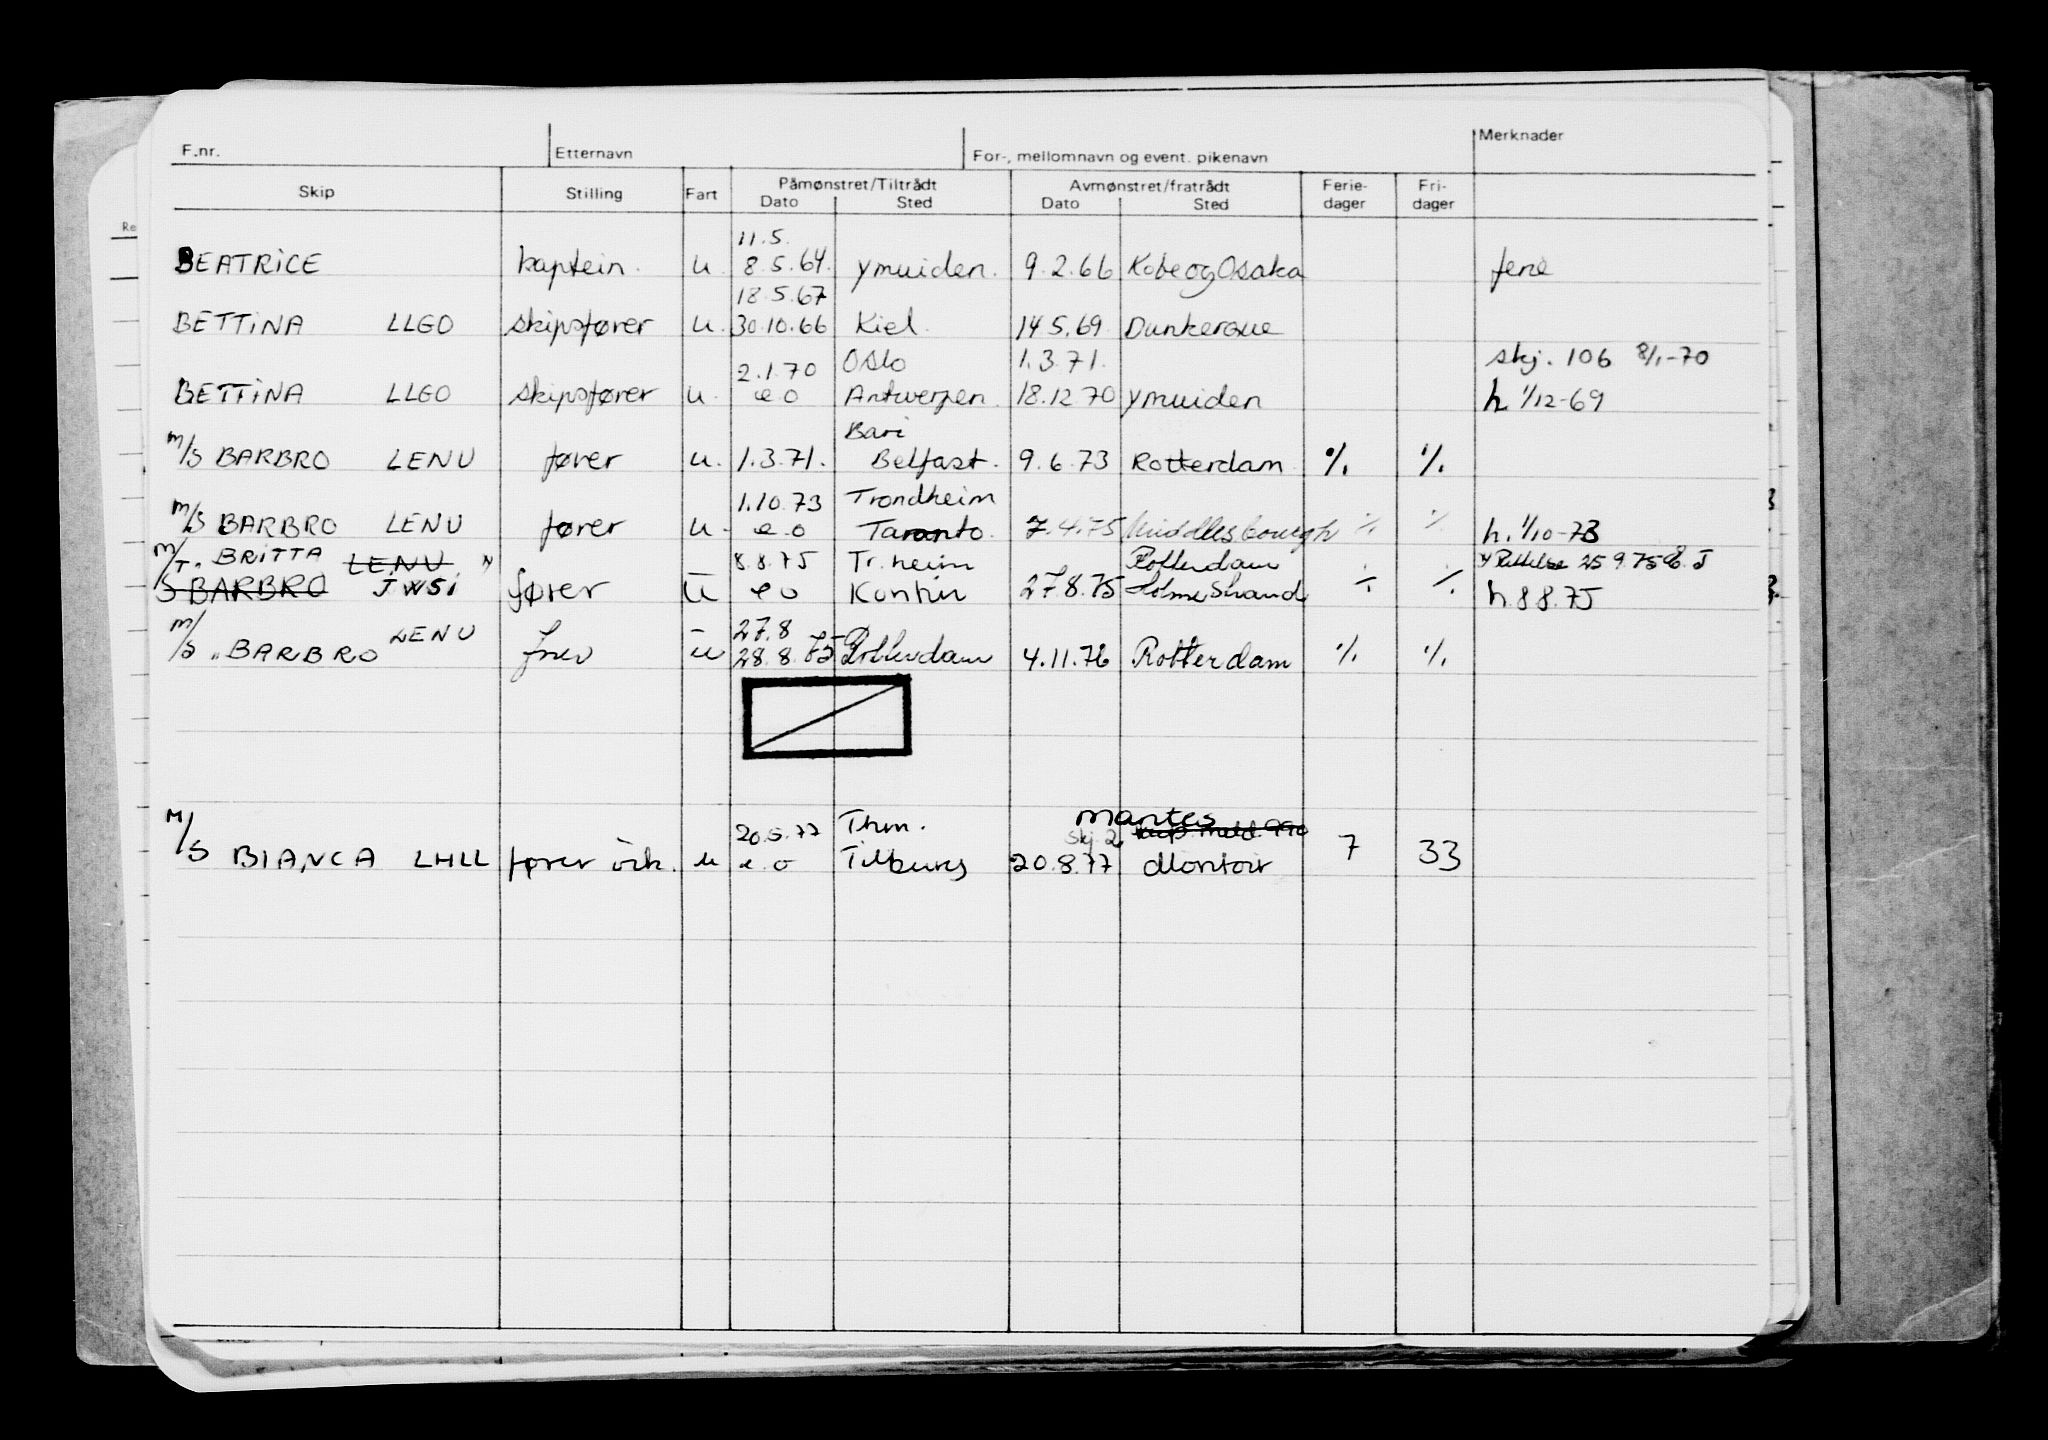 F.nr. Etternavn For-, mellomnavn og event. pikenavn Merknader
Skip Stilling Fart Påmønstret/Tiltrådt Avmønstret/fratrådt Ferie- Fri-
Dato Sted Dato Sted dager dager
11.5.
BEATRICE kaptein. u. 8.5.64. Ymuiden. 9.2.66 Kobe og Osaka ferie
18.5.67
BETTINA LLGO skipsfører u. 30.10.66 Kiel. 14.5.69. Dunkerque
2.1.70 Oslo 1.3.71. skj. 106 8/1-70
BETTINA LLGO skipsfører u. e.o Antwerpen. 18.12.70 Ymuiden h 1/12-69
Bari
M/S BARBRO LENU fører u. 1.3.71. Belfast. 9.6.73 Rotterdam % %
1.10.73 Trondheim
M/S BARBRO LENU fører u. e.o Taranto. 7.4.75 Middlesbourgh % % h. 1/10-73
M/T. BRITTA LENU 8.8.75 Tr.heim Rotterdam 25 9.75
S BARBRO JWSI fører u e o 27.8.75 Holmestrand ÷ ÷ h 8 8.75
LENU 27.8
M/S BARBRO fører u 28.8.75 Rotterdam 4.11.76 Rotterdam % %
20.5.77 Thm. Skj.2 Mantes
M/S BIANCA LHLL fører u e.o Tilburg 20.8.77 Montoir 7 33